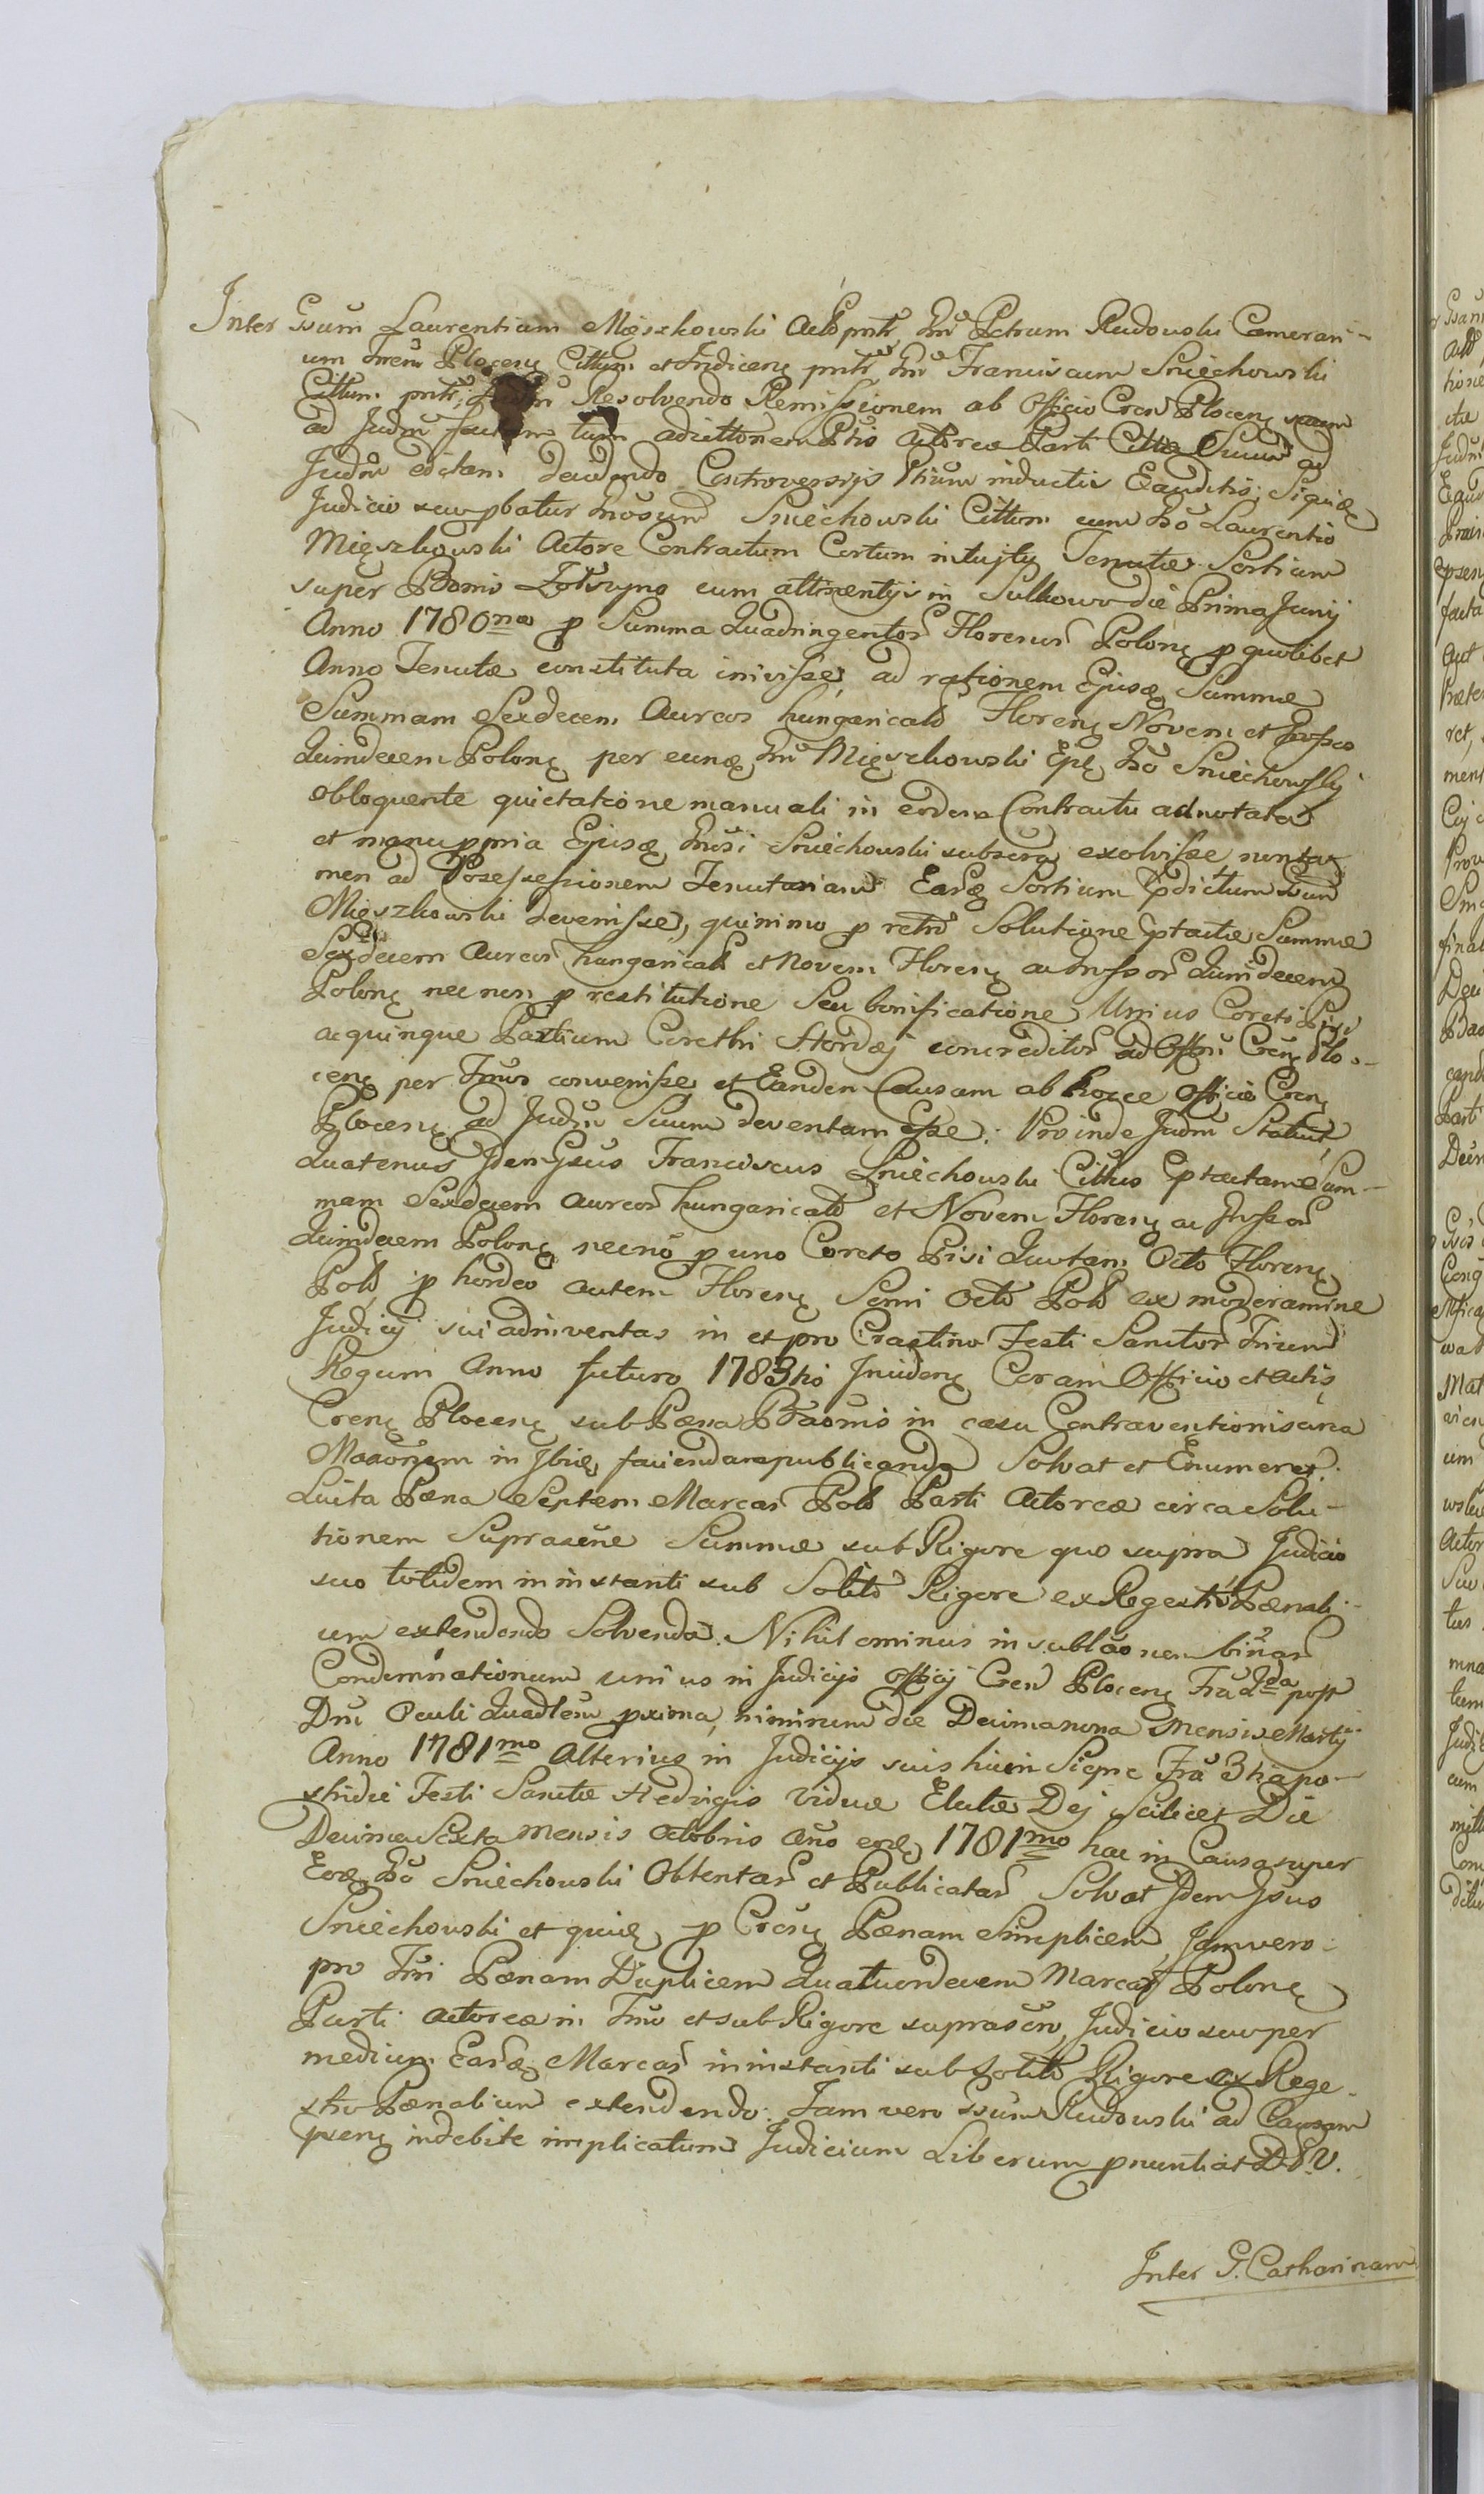 Inter Gsum Laurentium Mięszkowski Actō pntr Gnu Petrum Rudowski Camerari-
um Trēn Plocen Cittum et Tridicen pntr Gnu Franciscum Sniechowski
Cittum pntr, Resolvendo Remissionem ab Officio Cren Plocen suam
ad Judm factam tum adcittonem Ptio Actorea Parti Citta Suum ad
Judm editam decidendo Controversijs Ptium inductis Exauditis; Siquidem
Judicio suo pbatur Gnosum Sniechowski Cittum cum Gso Laurentio
Mięszkowski Actore Contractum Certum intuitu Tenutæ Sortium
super Bonis Zotszyno cum attinentijs in Sulkowo die Prima Junij
Anno 1780mo p Summa Quadringentor Florenor Polon p quolibet
Anno Tenutæ constituta inivisse, ad rationem Ejusq Summæ
Summam Sexdecem Aureos hungaricalō Floren Novem et Grosso
Quindecem Polon per eunq Gnu Mięszkowski Epl Gso Sniechowsky
obloquente quietatione manuali in eodem Contractu adnotata
et manuppria Ejusq Gnosi Sniechowski subscra exolvisse nunta-
men ad Possessionem Tenutariam Earq Sortium Epdictum Gsum
Mięszkowski devenisse, quinimo p retrō Solutione Eptactæ Summæ
Sexdecem Aureor hungaricalō et Novem Floren ac Grossor Quindecem
Polon nec non p restitutione Seu bonificatione Unius Coreti Pisi
ac quinque Partium Corethi Hordej concreditor ad Offm Cren Plo-
cen per Tmos convenisse et Eandem Causam ab hocce Officio Cren
Plocen ad Judm Suum deventam Esse. Proinde Judm Statuit,
Quatenus Idem Gsus Franciscus Sniechowski Cittus Eptactam Sum-
mam Sexdecem Aureor hungaricalō et Novem Floren ac Grossor
Quindecem Polon necnō p uno Coreto Pisi Quotam Octo Floren
Polō, p hordeo autem Floren Semi Octō Polō ex moderamine
Judicij sui adinventas in et pro Crastino Festi Sanctor Trium
Regum Anno futuro 1783tio Inciden Coram Officio et actis
Cren Plocen sub Pæna Baōnis in casu Contraventionis circa
Maōonem in Ibiq faciendam publicanda Solvat et Enumeret.
Luita Pæna Septem Marcar Polō Parti Actoreæ circa Solu-
tionem Suprascnæ Summæ sub Rigore quo supra Judicio
suo totidem in instanti sub Solitō Rigore ex Regestro Pænali-
um extendendo Solvenda. Nihilominus in sublāonem binar
Condemnationum unius in Judicijs Officij Cren Plocen Fria 2da post
Dnu Oculi Quadlēm pxima, nimirum die Decimanona Mensis Martij
Anno 1781mo Alterius in Judicijs suis hicin Siepnc Fria 3tia po-
stridie Festi Sanctæ Hedvigis viduæ Electæ Dej Scilicet Die
Decima Sexta Mensis Octobris Año eodq 1781mo hac in Causa super
Eodq Gso Sniechowski Obtentar et Publicatar Solvat Idem Gsus
Sniechowski et quidq p Cresq Pænam Simplicem, Jam vero
pro Tmi Pænam Duplicem Quatuordecem Marcar Polon
Parti actoreæ in Tmo et sub Rigore suprascrō Judicio suo per
medium Earq Marcar in instanti sub Solitō Rigore ex Rege-
stro Pænalium extendendo. Jam vero Gsum Rudowski ad Causam
psen indebite implicatum Judicium Liberum pnuntiat D. S. V.
Inter G. Catharinam